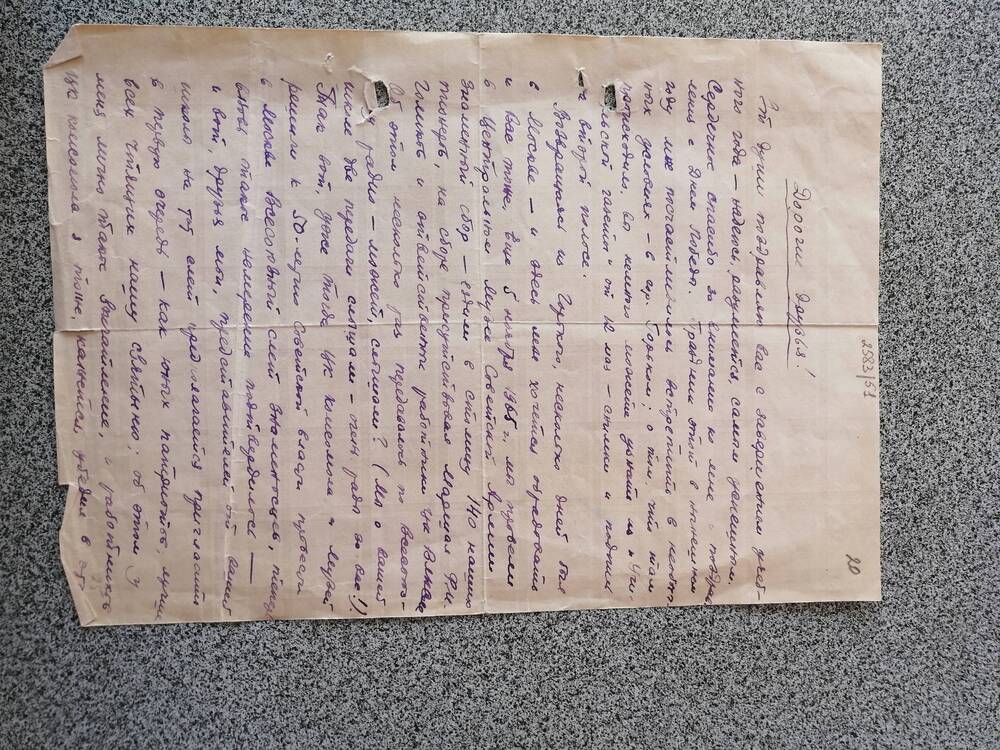 2583/51
20
Дорогие друзья!
От души поздравляю вас с завершением учеб-
ного года — надеюсь, разумеется, самым успешным.
Сердечное спасибо за внимание ко мне и поздрав
ления с Днем Победы. Праздник этот в нынешнем
году мне посчастливилось встретить в необыч-
ных условиях — в гор. Горьком; о том, что там
происходило, вы немного можете узнать из „Учи-
льской газеты" от 12 мая — снимки и подписи
на второй полосе.
Возвращаясь из Горького, несколько дней был
в Москве — и здесь мне хочется обрадовать
и Вас тоже. Еще 5 ноября 1965 г. мы провели
в Центральном Музее Советской Армии
Знаменный сбор — ездили в столицу 140 наших
пионеров, на сборе присутствовал Маршал Ф.И.
Голиков и ответственные работники ЦК ВЛКСМ.
Об этом несколько раз передавалось по Всесоюз-
му радио — может, слышали? (Мы о вашей
школе две передачи слышали — очень рады за вас!).
Так вот, уже тогда ЦК комсомола и Музей
решили к 50-летию Советской власти провести
в Москве Всесоюзный слет знаменосцев, теперь
вновь такое намерение подтвердилось —
и вот, друзья мои, представителей от вашей
школы на тот слет предполагается пригласить
в первую очередь — как юных патриотов, лучше
всех чтящих нашу святыню; об этом у
меня лично такое впечатление, и работников
ЦК комсомола я тоже, кажется, убедил в